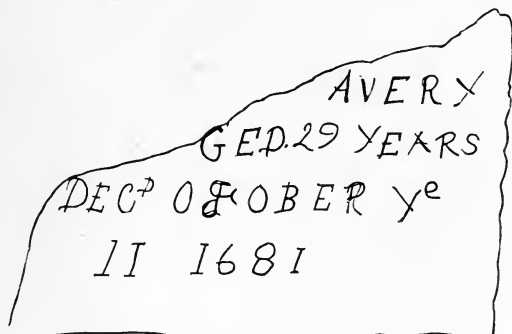 AVERY
GED.29 YEARS
DECᴰ OCTOBER Yᵉ
1I I68I